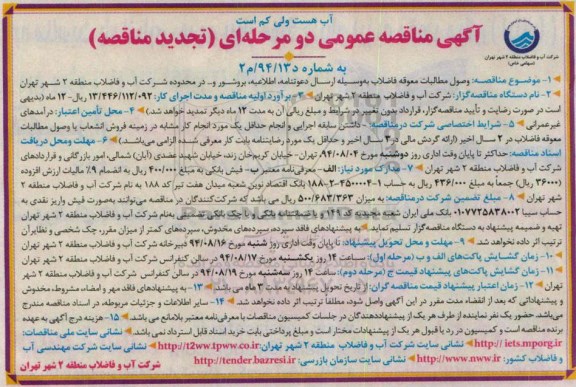 آب هست ولی کم است
آگهی مناقصه عمومی دو مرحله‌ای (تجدید مناقصه)
شرکت آب و فاضلاب منطقه ۲ شهر تهران
(سهامی خاص)
به شماره د۹۴/۱۳/م۲
۱- موضوع مناقصه: وصول مطالبات معوقه فاضلاب به‌وسیله ارسال دعوتنامه، اطلاعیه، بروشور و.. در محدوده شرکت آب و فاضلاب منطقه ۲ شهر تهران
۲- نام دستگاه مناقصه‌گزار: شرکت آب و فاضلاب منطقه ۲ شهر تهران ۳- برآورد اولیه مناقصه و مدت اجرای کار: ۱۳/۴۴۶/۱۱۲/۰۹۲ ریال- ۱۲ ماه (بدیهی
است در صورت رضایت و تأیید مناقصه‌گزار، قرارداد بدون تغییر در شرایط و مبلغ ریالی آن به مدت ۱۲ ماه دیگر تمدید خواهد شد.) ۴- محل تأمین اعتبار: درآمدهای
غیرعمرانی ۵- شرایط اختصاصی شرکت در مناقصه: - داشتن سابقه اجرایی و انجام حداقل یک مورد انجام کار مشابه در زمینه فروش انشعاب یا وصول مطالبات
معوقه فاضلاب در ۳ سال اخیر (ارائه گردش مالی در ۳ سال اخیر و حداقل یک مورد رضایتنامه بابت کار معرفی شده الزامی می‌باشد.) ۶- مهلت ومحل دریافت
اسناد مناقصه: حداکثر تا پایان وقت اداری روز دوشنبه مورخ ۹۴/۰۸/۰۴ تهران- خیابان کریم‌خان زند، خیابان شهید عضدی (آبان) شمالی، امور بازرگانی و قراردادهای
شرکت آب و فاضلاب منطقه ۲ شهر تهران ۷- مدارک مورد نیاز: الف- معرفی‌نامه معتبر ب- فیش بانکی به مبلغ ۴۰۰/۰۰۰ ریال به انضمام ۹٪ مالیات ارزش افزوده
(۳۶/۰۰۰ ریال) جمعاً به مبلغ ۴۳۶/۰۰۰ ریال به حساب ۱-۳۵۰۰۰۰۴-۲-۱۸۸ بانک اقتصاد نوین شعبه میدان هفت تیر کد ۱۸۸ به نام شرکت آب و فاضلاب منطقه ۲
شهر تهران ۸- مبلغ تضمین شرکت در مناقصه: به میزان ۵۰۰/۶۸۳/۳۶۳ ریال می باشد که شرکت‌کنندگان در مناقصه می‌توانند به‌صورت فیش واریز نقدی به
حساب سیبا ۰۱۰۷۷۲۵۸۳۸۰۰۲ بانک ملی ایران شعبه مجدد کد ۱۴۱ و یا ضمانتنامه بانکی و یا چک بانکی تضمینی به‌نام شرکت آب و فاضلاب منطقه ۲ شهر تهران
تهیه و ضمیمه پیشنهاد به دستگاه مناقصه‌گزار تسلیم نماید. به پیشنهادهای فاقد سپرده، سپرده‌های مخدوش، سپرده‌های کمتر از میزان مقرر، چک شخصی و نظایر آن
ترتیب اثر داده نخواهد شد. ۹- مهلت و محل تحویل پیشنهاد: تا پایان وقت اداری روز شنبه مورخ ۹۴/۰۸/۱۶ دبیرخانه شرکت آب و فاضلاب منطقه ۲ شهر تهران
۱۰- زمان گشایش پاکت‌های الف و ب (مرحله اول): ساعت ۱۴ روز یکشنبه مورخ ۹۴/۰۸/۱۷ در سالن کنفرانس شرکت آب و فاضلاب منطقه ۲ شهر تهران
۱۱- زمان گشایش پاکت‌های پیشنهاد قیمت ج (مرحله دوم): ساعت ۱۴ روز سه‌شنبه مورخ ۹۴/۰۸/۱۹ در سالن کنفرانس شرکت آب و فاضلاب منطقه ۲ شهر
تهران ۱۲- زمان اعتبار پیشنهاد قیمت مناقصه گران: از تاریخ تحویل پیشنهاد به مدت ۳ ماه می باشد ۱۳- به پیشنهادهای فاقد مهر و امضاء، مشروط، مخدوش
و پیشنهاداتی که بعد از انقضاء مدت مقرر در این آگهی واصل شود، مطلقاً ترتیب اثر داده نخواهد شد. ۱۴- سایر اطلاعات و جزئیات مربوطه، در اسناد مناقصه مندرج
می‌باشد. حضور یک نفر نماینده از طرف هر یک از پیشنهاددهندگان در جلسات کمیسیون مناقصات با معرفی‌نامه معتبر بلامانع می باشد. ۱۵- هزینه درج آگهی به عهده
برنده مناقصه است و کمیسیون در رد یا قبول هر یک از پیشنهادات مختار است و مبلغ پرداختی بابت خرید اسناد قابل استرداد نمی باشد. نشانی سایت ملی مناقصات:
http://iets.mporg.ir نشانی سایت شرکت آب و فاضلاب منطقه ۲ شهر تهران: http://t2ww.tpww.co.ir نشانی سایت شرکت مهندسی آب
و فاضلاب کشور: http://www.nww.ir نشانی سایت سازمان بازرسی: http://tender.bazresi.ir شرکت آب و فاضلاب منطقه ۲ شهر تهران